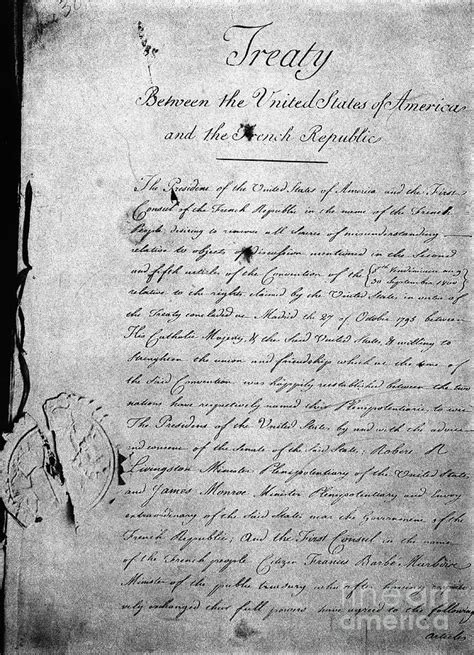 Treaty
Between the United States of America
and the French Republic
The President of the United States of America and the First
Consul of the French Republic in the name of the French
People desiring to remove all Source of misunderstanding
relative to objects of discussion mentioned in the Second
and fifth articles of the Convention of the 8th Vendémiaire an 9
30 September 1800
relative to the rights claimed by the United States in virtue of
the Treaty concluded at Madrid the 27 of October 1795 between
His Catholic Majesty, & the Said United States, & willing to
Strengthen the union and friendship which at the time of
the Said Convention was happily reestablished between the two
nations have respectively named their Plenipotentiaries to wit
The President of the United States, by and with the advice
and consent of the Senate of the Said States; Robert R
Livingston Minister Plenipotentiary of the United States
and James Monroe Minister Plenipotentiary and Envoy
extraordinary of the Said States near the Government of the
French Republic; And the First Consul in the name
of the French people, Citizen Francis Barbé Marbois
Minister of the public treasury who after having
vely exchanged their full powers have agreed to the following
articles
fine art
america